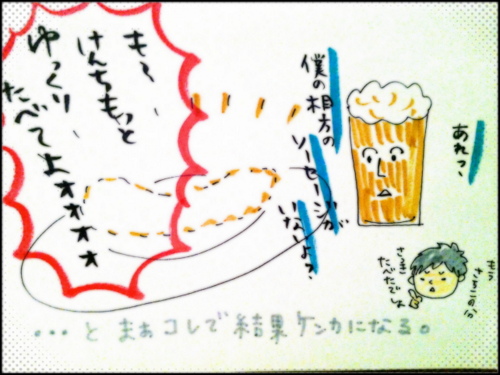 あれっ、
僕の相方の
ソーセージが
いないよ?
も〜、
けんちもっと
ゆっくり
たべてよォォォォ
もう
さっきのが
たべたでしょ
...と まぁコレで結果ケンカになる。